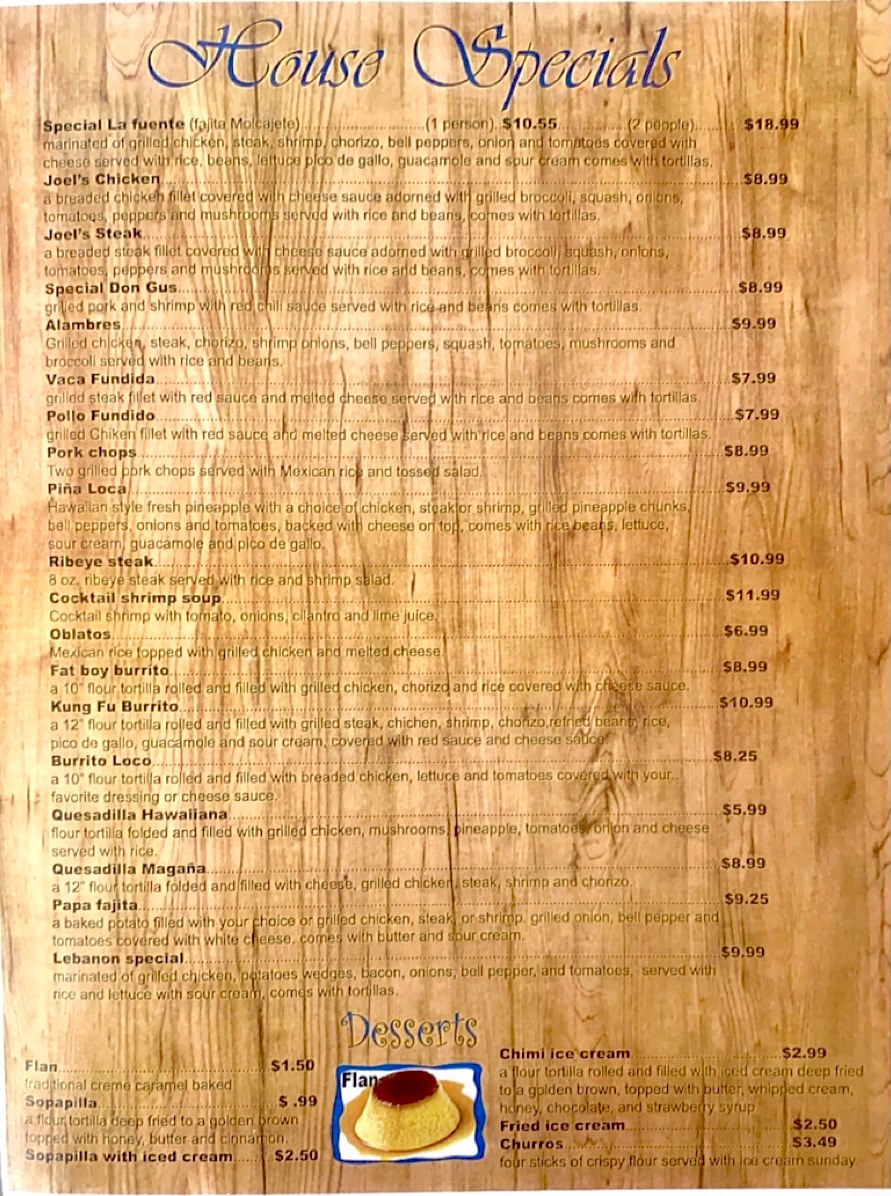 House Specials
Special La fuente (fajita Molcajete)..............................(1 person)..$10.55................(2 people)......... $18.99
marinated of grilled chicken, steak, shrimp, chorizo, bell peppers, onion and tomatoes covered with
cheese served with rice, beans, lettuce pico de gallo, guacamole and sour cream comes with tortillas.
Joel's Chicken..............................$8.99
a breaded chicken fillet covered with cheese sauce adorned with grilled broccoli, squash, onions,
tomatoes, peppers and mushrooms served with rice and beans, comes with tortillas.
Joel's Steak..............................$8.99
a breaded steak fillet covered with cheese sauce adorned with grilled broccoli, squash, onions,
tomatoes, peppers and mushrooms served with rice and beans, comes with tortillas.
Special Don Gus..............................$8.99
grilled pork and shrimp with red chili sauce served with rice and beans comes with tortillas.
Alambres..............................$9.99
Grilled chicken, steak, chorizo, shrimp onions, bell peppers, squash, tomatoes, mushrooms and
broccoli served with rice and beans.
Vaca Fundida..............................$7.99
grilled steak fillet with red sauce and melted cheese served with rice and beans comes with tortillas.
Pollo Fundido..............................$7.99
grilled Chiken fillet with red sauce and melted cheese served with rice and beans comes with tortillas.
Pork chops..............................$8.99
Two grilled pork chops served with Mexican rice and tossed salad.
Piña Loca..............................$9.99
Hawaiian style fresh pineapple with a choice of chicken, steak or shrimp, grilled pineapple chunks,
bell peppers, onions and tomatoes, backed with cheese on top, comes with rice beans, lettuce,
sour cream, guacamole and pico de gallo.
Ribeye steak..............................$10.99
8 oz. ribeye steak served with rice and shrimp salad.
Cocktail shrimp soup..............................$11.99
Cocktail shrimp with tomato, onions, cilantro and lime juice.
Oblatos..............................$6.99
Mexican rice topped with grilled chicken and melted cheese.
Fat boy burrito..............................$8.99
a 10" flour tortilla rolled and filled with grilled chicken, chorizo and rice covered with cheese sauce.
Kung Fu Burrito..............................$10.99
a 12" flour tortilla rolled and filled with grilled steak, chichen, shrimp, chorizo,refried beans, rice,
pico de gallo, guacamole and sour cream, covered with red sauce and cheese sauce.
Burrito Loco..............................$8.25
a 10" flour tortilla rolled and filled with breaded chicken, lettuce and tomatoes covered with your..
favorite dressing or cheese sauce.
Quesadilla Hawaiiana..............................$5.99
flour tortilla folded and filled with grilled chicken, mushrooms, pineapple, tomatoes, onion and cheese
served with rice.
Quesadilla Magaña..............................$8.99
a 12" flour tortilla folded and filled with cheese, grilled chicken, steak, shrimp and chorizo.
Papa fajita..............................$9.25
a baked potato filled with your choice or grilled chicken, steak, or shrimp. grilled onion, bell pepper and
tomatoes covered with white cheese. comes with butter and sour cream.
Lebanon special..............................$9.99
marinated of grilled chicken, potatoes wedges, bacon, onions, bell pepper, and tomatoes, served with
rice and lettuce with sour cream, comes with tortillas.
Desserts
Flan..............................$1.50
traditional creme caramel baked
Sopapilla..............................$ .99
a flour tortilla deep fried to a golden brown
topped with honey, butter and cinnamon.
Sopapilla with iced cream....... $2.50
Flan
Chimi ice cream..............................$2.99
a flour tortilla rolled and filled with iced cream deep fried
to a golden brown, topped with butter, whipped cream,
honey, chocolate, and strawberry syrup.
Fried ice cream..............................$2.50
Churros..............................$3.49
four sticks of crispy flour served with ice cream sunday.